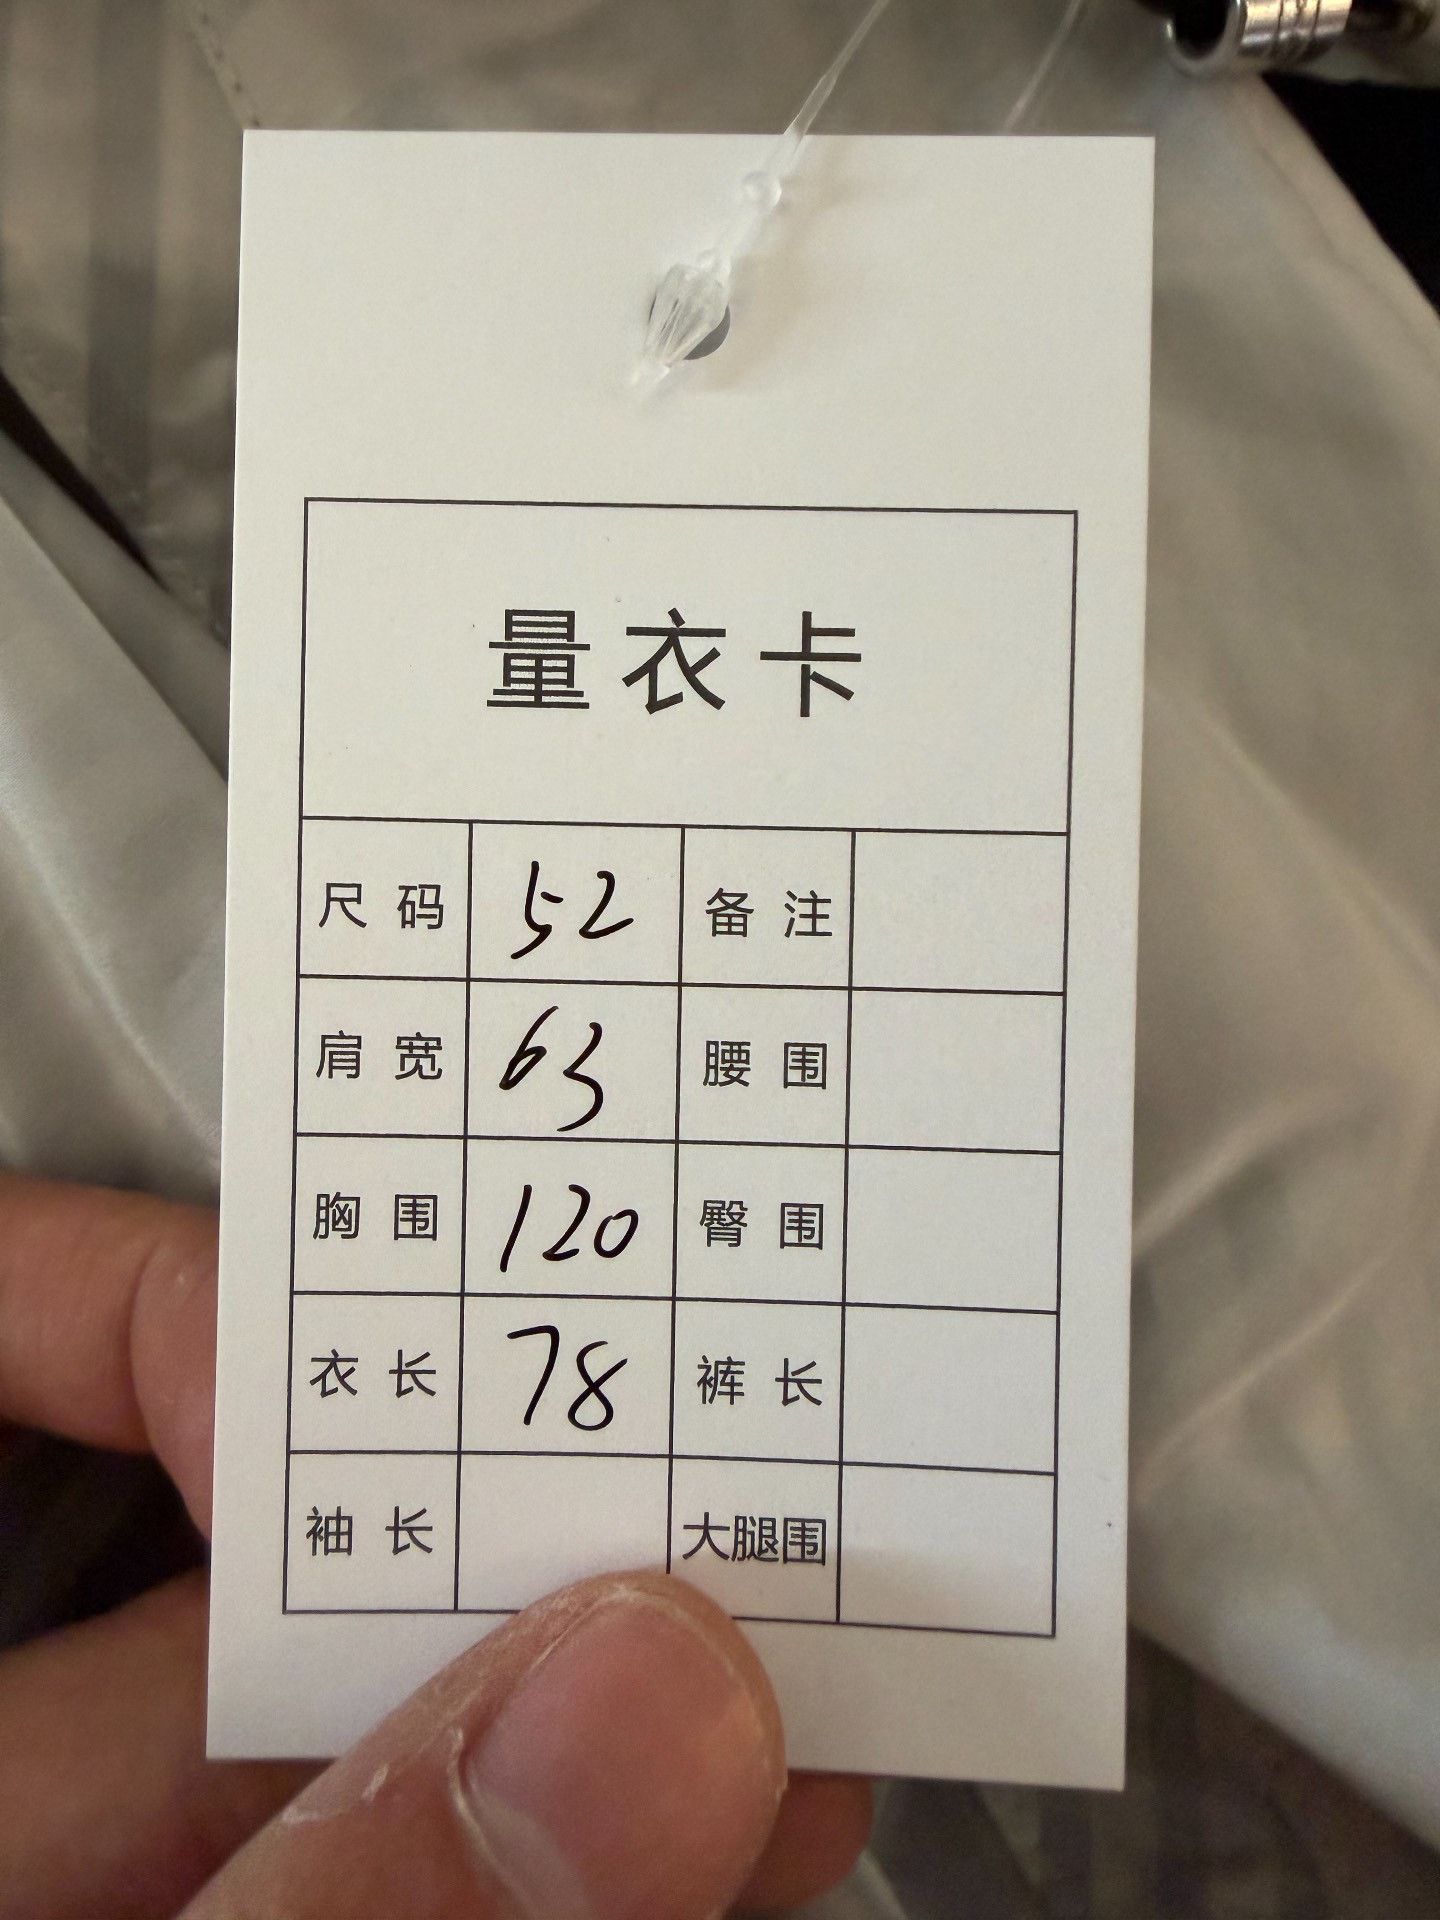 量衣卡
尺码 52 备注
肩宽 63 腰围
胸围 120 臀围
衣长 78 裤长
袖长 大腿围